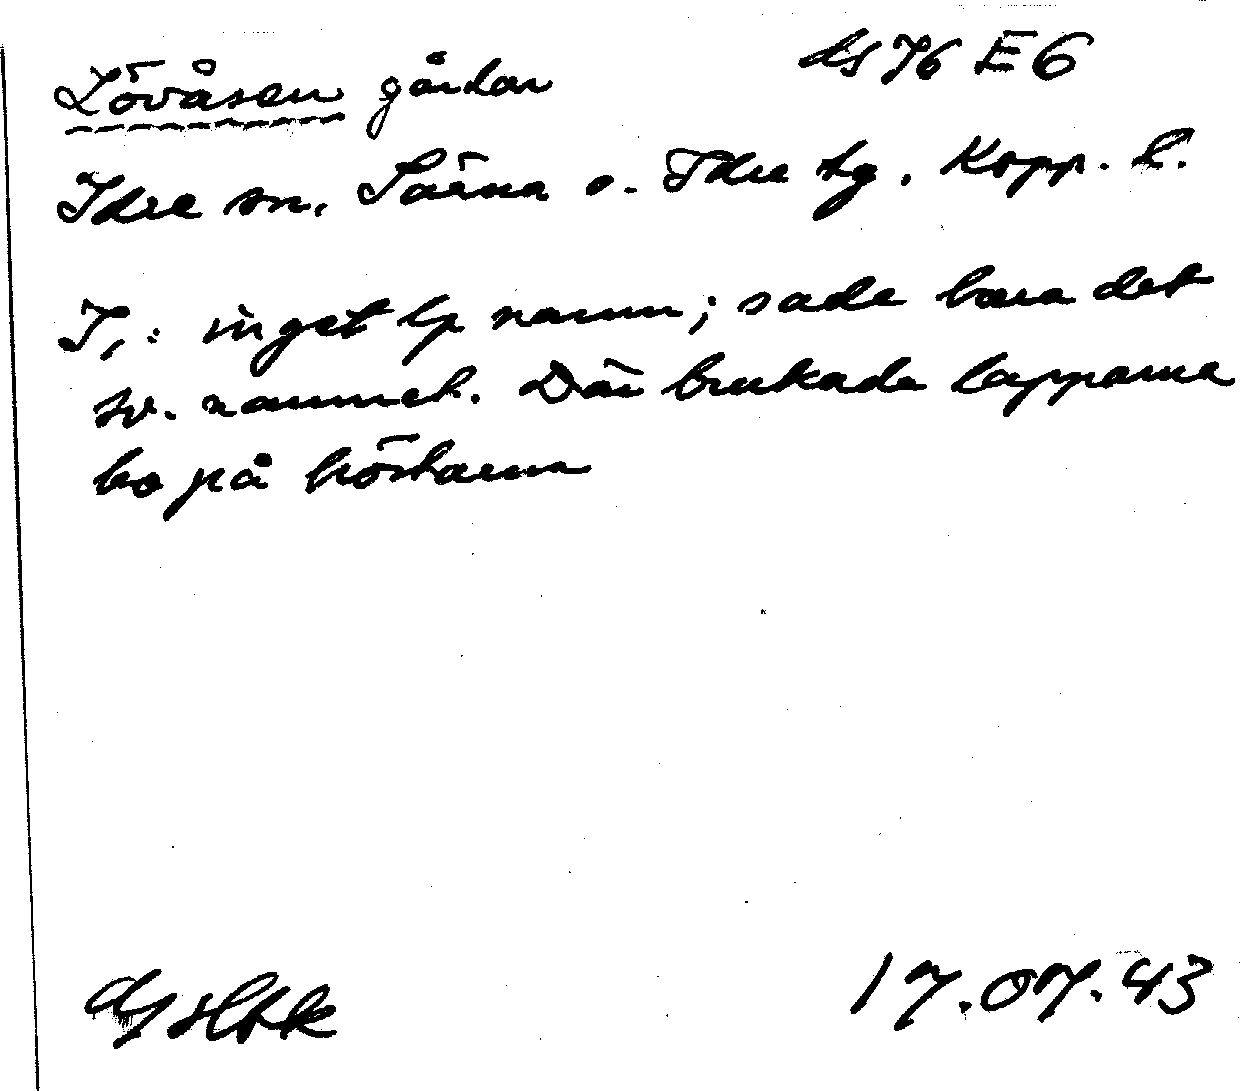 Lövåsen gårdar bs 76 E6
Idre sn, Särna o. Idre tg. Kopp. l.
I,: inget lp namn; sade bara det
sv. namnet. Där brukade lapparna
bo på höstarna
17.07.43